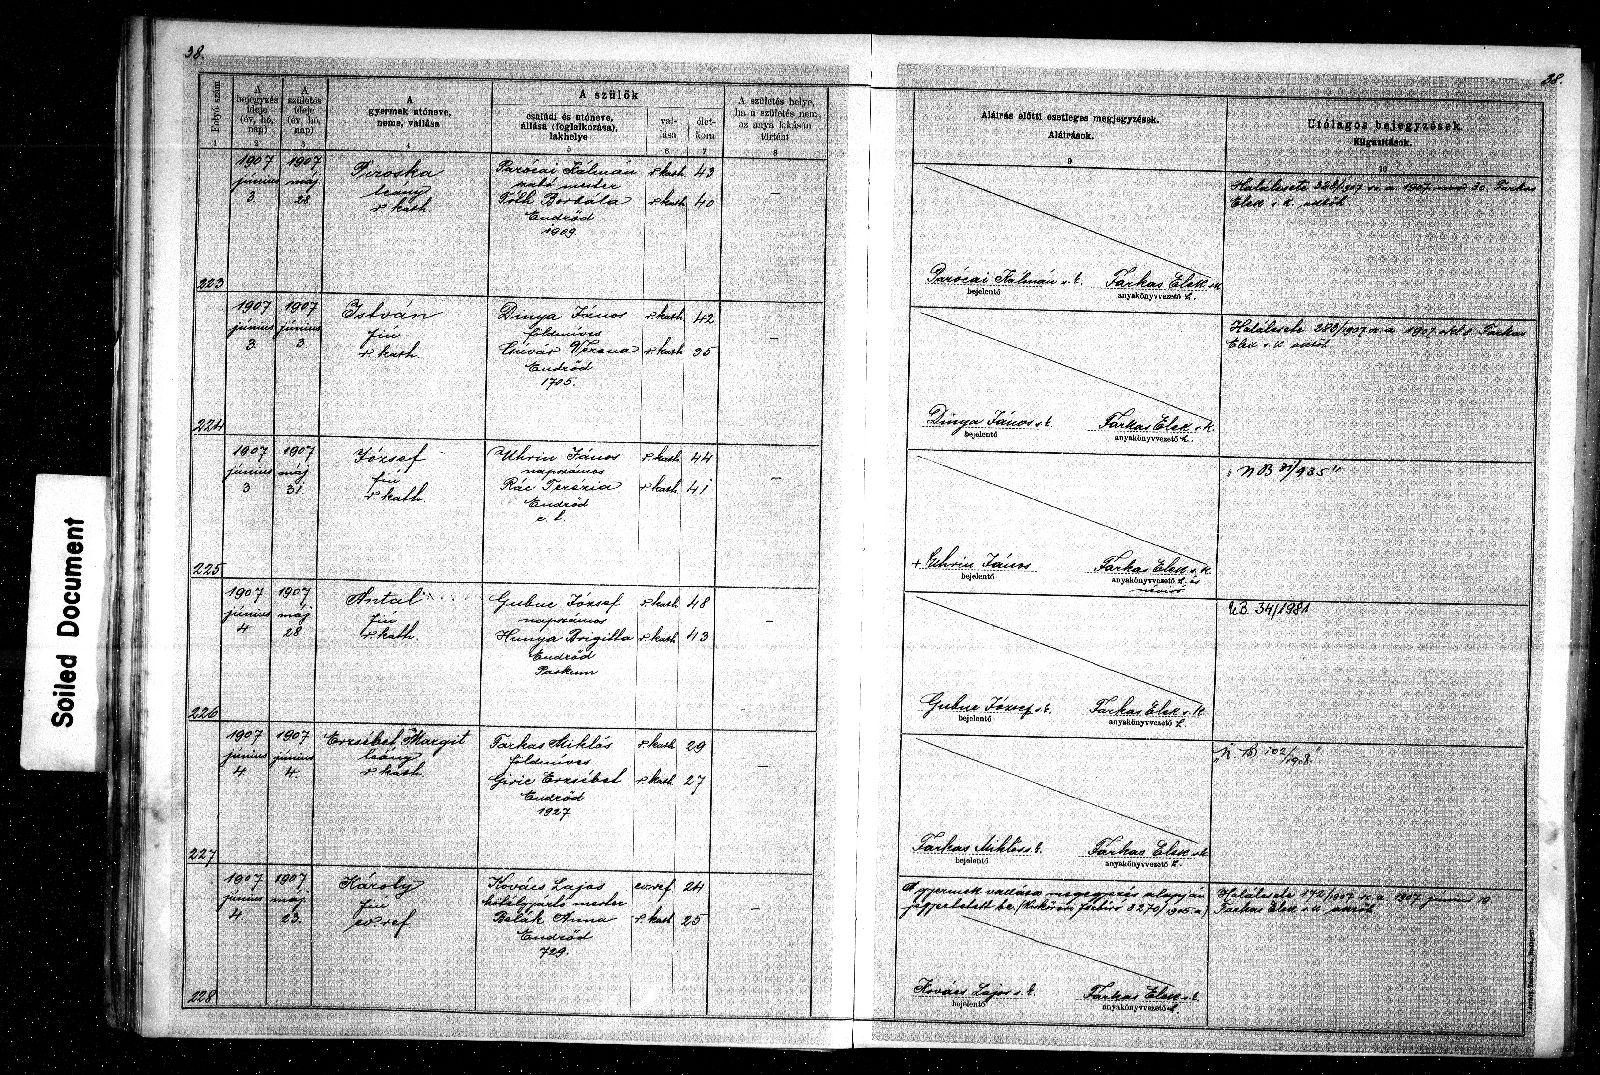 38.
38.
Folyó szám
A bejegyzés ideje (év, hó, nap)
A születés ideje (év, hó, nap)
A gyermek utóneve, neme, vallása
A szülők
családi és utóneve, állása (foglalkozása), lakhelye
vallása
életkora
A születés helye, ha a születés nem az anya lakásán történt
Aláírás előtti esetleges megjegyzések.
Aláírások.
Utólagos bejegyzések.
Kiigazítások.
1 2 3 4 5 6 7 8 9 10
223
1907 június 3
1907 máj 28
Piroska
leány
r kath
Parócai Kálmán r kath 43
szabó mester
Tóth Borbála r kath 40
Endrőd
1909.
—
Parócai Kálmán s. k.
bejelentő
Farkas Elek s. k.
anyakönyvvezető h.
Farkas
Elek s. k. aljzőt
224
1907 június 3
1907 június 3
István
fiú
r kath.
Dinya János r kath 42
földmíves
Verona r kath 35
Endrőd
1705.
—
Dinya János s. k.
bejelentő
Farkas Elek s. k.
anyakönyvvezető h.
Halálesete 283/907 1907 Farkas
Elek s. k.
225
1907 június 3
1907 máj 31
József
fiú
r kath.
Uhrin János r kath 44
napszámos
Rác Terézia r kath 41
Endrőd
—
+ Uhrin János
bejelentő
Farkas Elek s. k.
anyakönyvvezető h. és
névíró
226
1907 június 4
1907 máj 28
Antal
fiú
r kath.
Gubuc József r kath 48
napszámos
Hunya Brigitta r kath 43
Endrőd
—
Gubuc József s. k.
bejelentő
Farkas Elek s. k.
anyakönyvvezető h.
34/1981
227
1907 június 4
1907 június 4.
Erzsébet Margit
leány
r kath.
Farkas Miklós r kath 29
földmíves
Giric Erzsébet r kath 27
Endrőd
1927
Farkas Miklós s. k.
bejelentő
Farkas Elek s. k.
anyakönyvvezető h.
228
1907 június 4
1907 máj. 23.
Károly
fiú
ev ref
Kovács Lajos ev ref 24
mester
Belák Anna r kath 25
Endrőd
729.
—
A gyermek vallása megegyezés alapján
Kovács Lajos s. k.
bejelentő
Farkas Elek s. k.
anyakönyvvezető h.
Halálesete 172/907 1907 június 10
Farkas Elek s. k.
Soiled Document